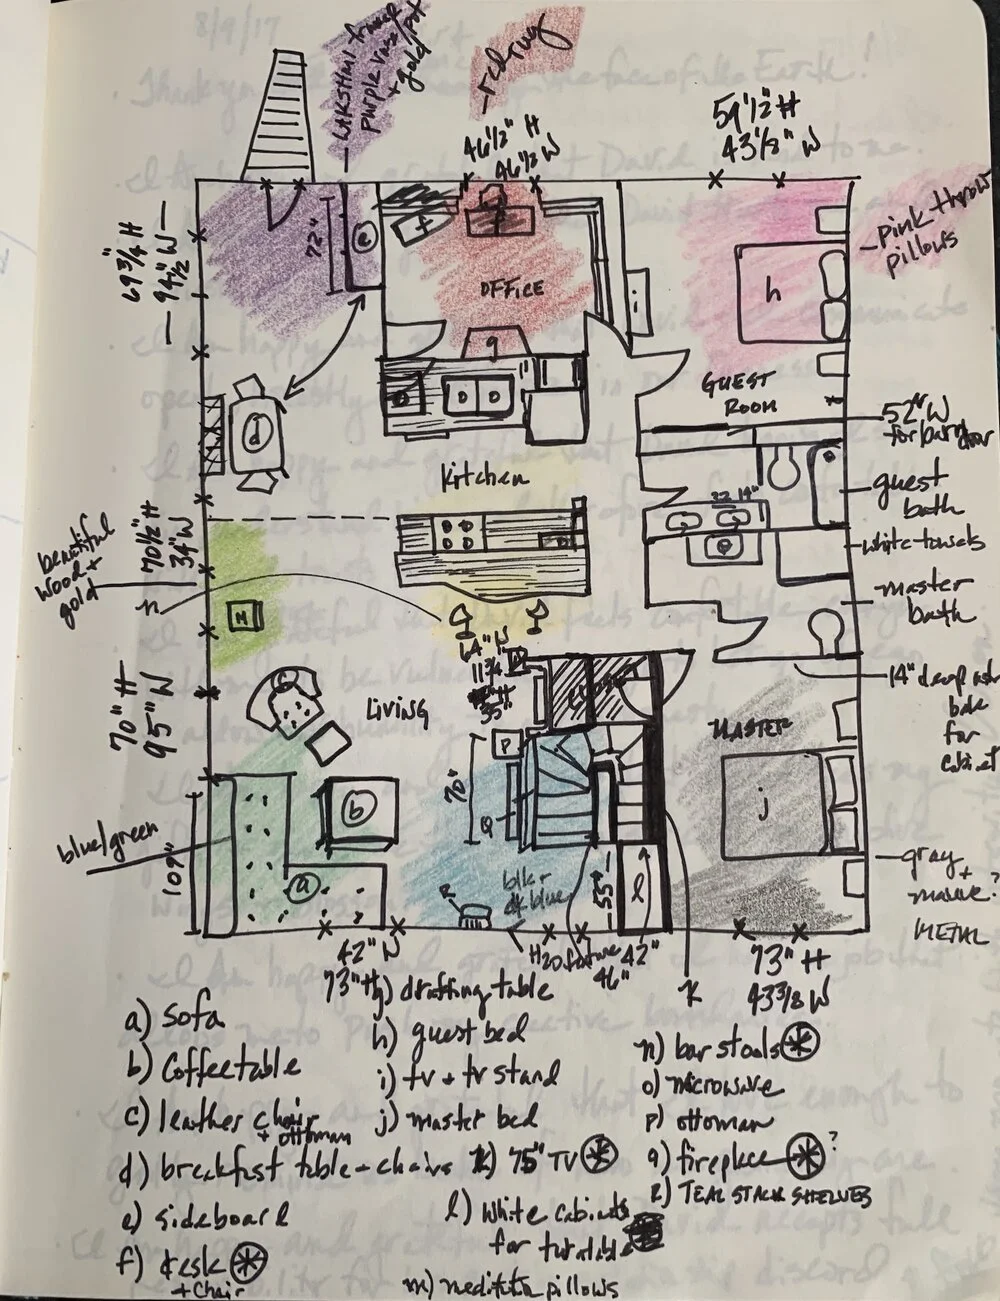 8/9/17
LAKSHMI
purple vase/pot
+ gold
- red rug
46 1/2" H
46 1/2 W
59 1/2" H
43 1/8" W
- pink throw
pillows
69 3/4" H
94 1/2" W
72"
e
f
OFFICE
g
h
i
GUEST
ROOM
52" W
for barn door
d
Kitchen
guest
bath
white towels
master
bath
beautiful
wood +
gold
70 1/2" H
34" W
n
M
64" W
11 3/4
35"
14" deep
for
cabinet
70" H
95" W
c
LIVING
MASTER
P
70"
Q
b
j
blue/green
109"
a
R
blk +
dk blue
55"
l
gray +
mauve?
METAL
42" W
73" H
H2O feature
42"
46"
K
73" H
43 3/8 W
a) sofa
b) Coffee table
c) leather chair
+ ottoman
d) breakfast table + chairs
e) sideboard
f) desk
+ chair
g) drafting table
h) guest bed
i) tv + tv stand
j) master bed
k) 75" TV
l) white cabinets
for turntable
m) meditatn pillows
n) bar stools
o) microwave
p) ottoman
q) fireplace ?
R) TEAL STACK SHELVES